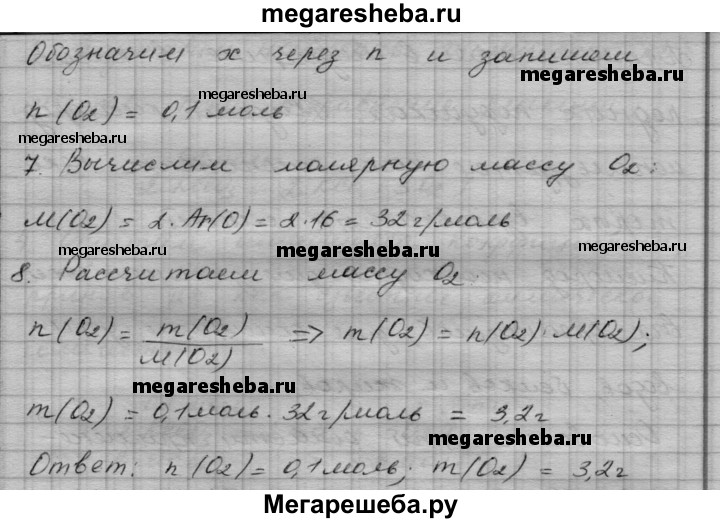 megaresheba.ru
Обозначим x через n и запишем
megaresheba.ru
megaresheba.ru
n(O₂) = 0,1 моль
megaresheba.ru
7. Вычислим молярную массу O₂:
M(O₂) = 2·Ar(O) = 2·16 = 32 г/моль
megaresheba.ru
megaresheba.ru
megaresheba.ru
8. Рассчитаем массу O₂:
n(O₂) = m(O₂)/M(O₂) => m(O₂) = n(O₂)·M(O₂);
megaresheba.ru
m(O₂) = 0,1 моль · 32 г/моль = 3,2 г
megaresheba.ru
Ответ: n(O₂) = 0,1 моль; m(O₂) = 3,2 г
Мегарешеба.ру